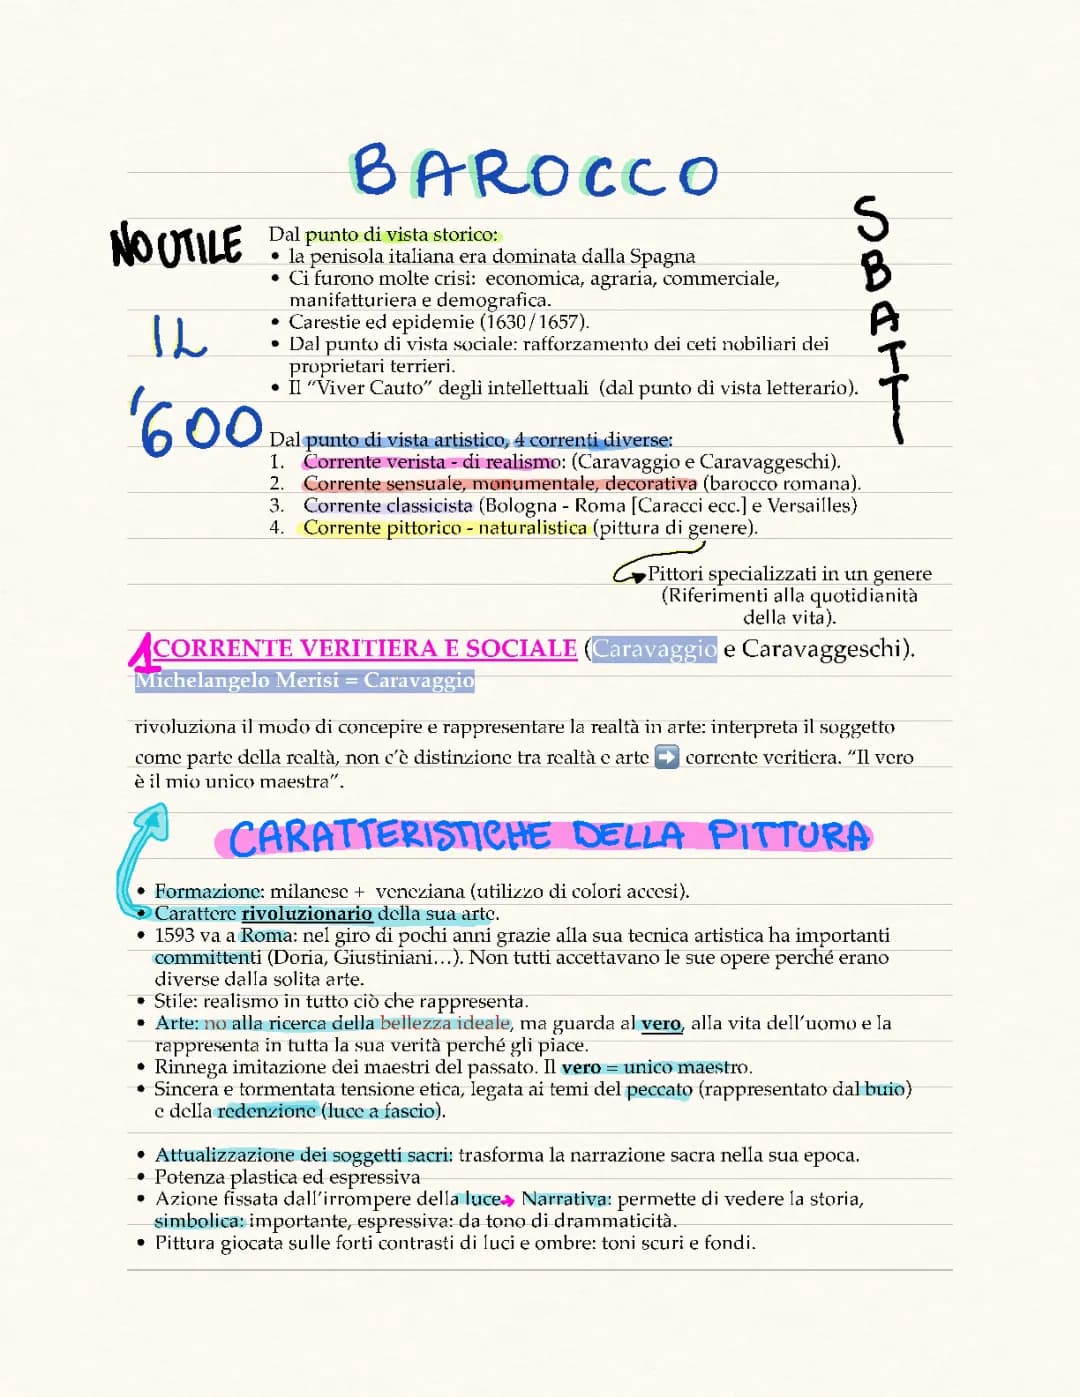 BAROCCO
NO UTILE
SBATTI
Dal punto di vista storico:
• la penisola italiana era dominata dalla Spagna
• Ci furono molte crisi: economica, agraria, commerciale,
manifatturiera e demografica.
• Carestie ed epidemie (1630/1657).
• Dal punto di vista sociale: rafforzamento dei ceti nobiliari dei
proprietari terrieri.
• Il “Viver Cauto” degli intellettuali (dal punto di vista letterario).
IL
'600
Dal punto di vista artistico, 4 correnti diverse:
1. Corrente verista - di realismo: (Caravaggio e Caravaggeschi).
2. Corrente sensuale, monumentale, decorativa (barocco romana).
3. Corrente classicista (Bologna - Roma [Caracci ecc.] e Versailles)
4. Corrente pittorico - naturalistica (pittura di genere).
Pittori specializzati in un genere
(Riferimenti alla quotidianità
della vita).
1 CORRENTE VERITIERA E SOCIALE (Caravaggio e Caravaggeschi).
Michelangelo Merisi = Caravaggio
rivoluziona il modo di concepire e rappresentare la realtà in arte: interpreta il soggetto
come parte della realtà, non c'è distinzione tra realtà e arte ➡️ corrente veritiera. “Il vero
è il mio unico maestra”.
CARATTERISTICHE DELLA PITTURA
• Formazione: milanese + veneziana (utilizzo di colori accesi).
• Carattere rivoluzionario della sua arte.
• 1593 va a Roma: nel giro di pochi anni grazie alla sua tecnica artistica ha importanti
committenti (Doria, Giustiniani…). Non tutti accettavano le sue opere perché erano
diverse dalla solita arte.
• Stile: realismo in tutto ciò che rappresenta.
• Arte: no alla ricerca della bellezza ideale, ma guarda al vero, alla vita dell'uomo e la
rappresenta in tutta la sua verità perché gli piace.
• Rinnega imitazione dei maestri del passato. Il vero = unico maestro.
• Sincera e tormentata tensione etica, legata ai temi del peccato (rappresentato dal buio)
e della redenzione (luce a fascio).
• Attualizzazione dei soggetti sacri: trasforma la narrazione sacra nella sua epoca.
• Potenza plastica ed espressiva
• Azione fissata dall'irrompere della luce→ Narrativa: permette di vedere la storia,
simbolica: importante, espressiva: da tono di drammaticità.
• Pittura giocata sulle forti contrasti di luci e ombre: toni scuri e fondi.